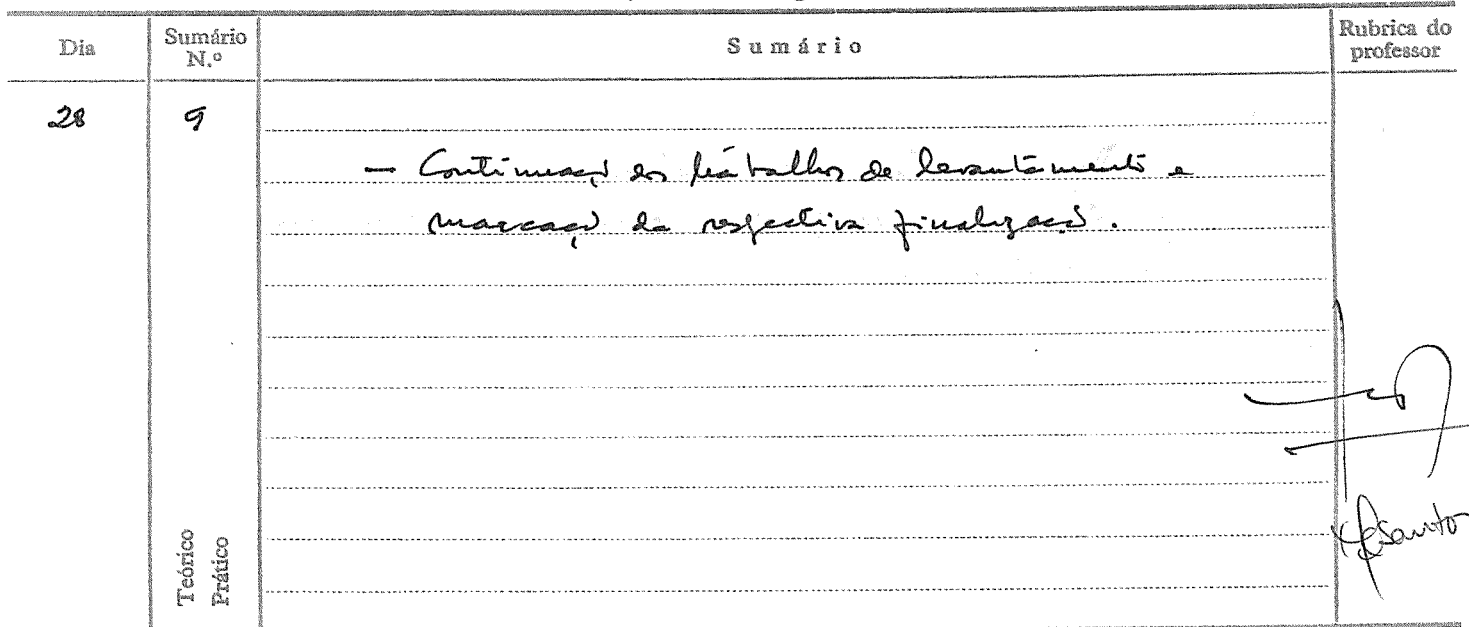 Dia
Sumário N.º
Sumário
Rubrica do professor
28
9
— Continuaçõ dos trabalhos de levantamento e
marcaçõ da respectiva finalizaçõ.
Teórico
Prático